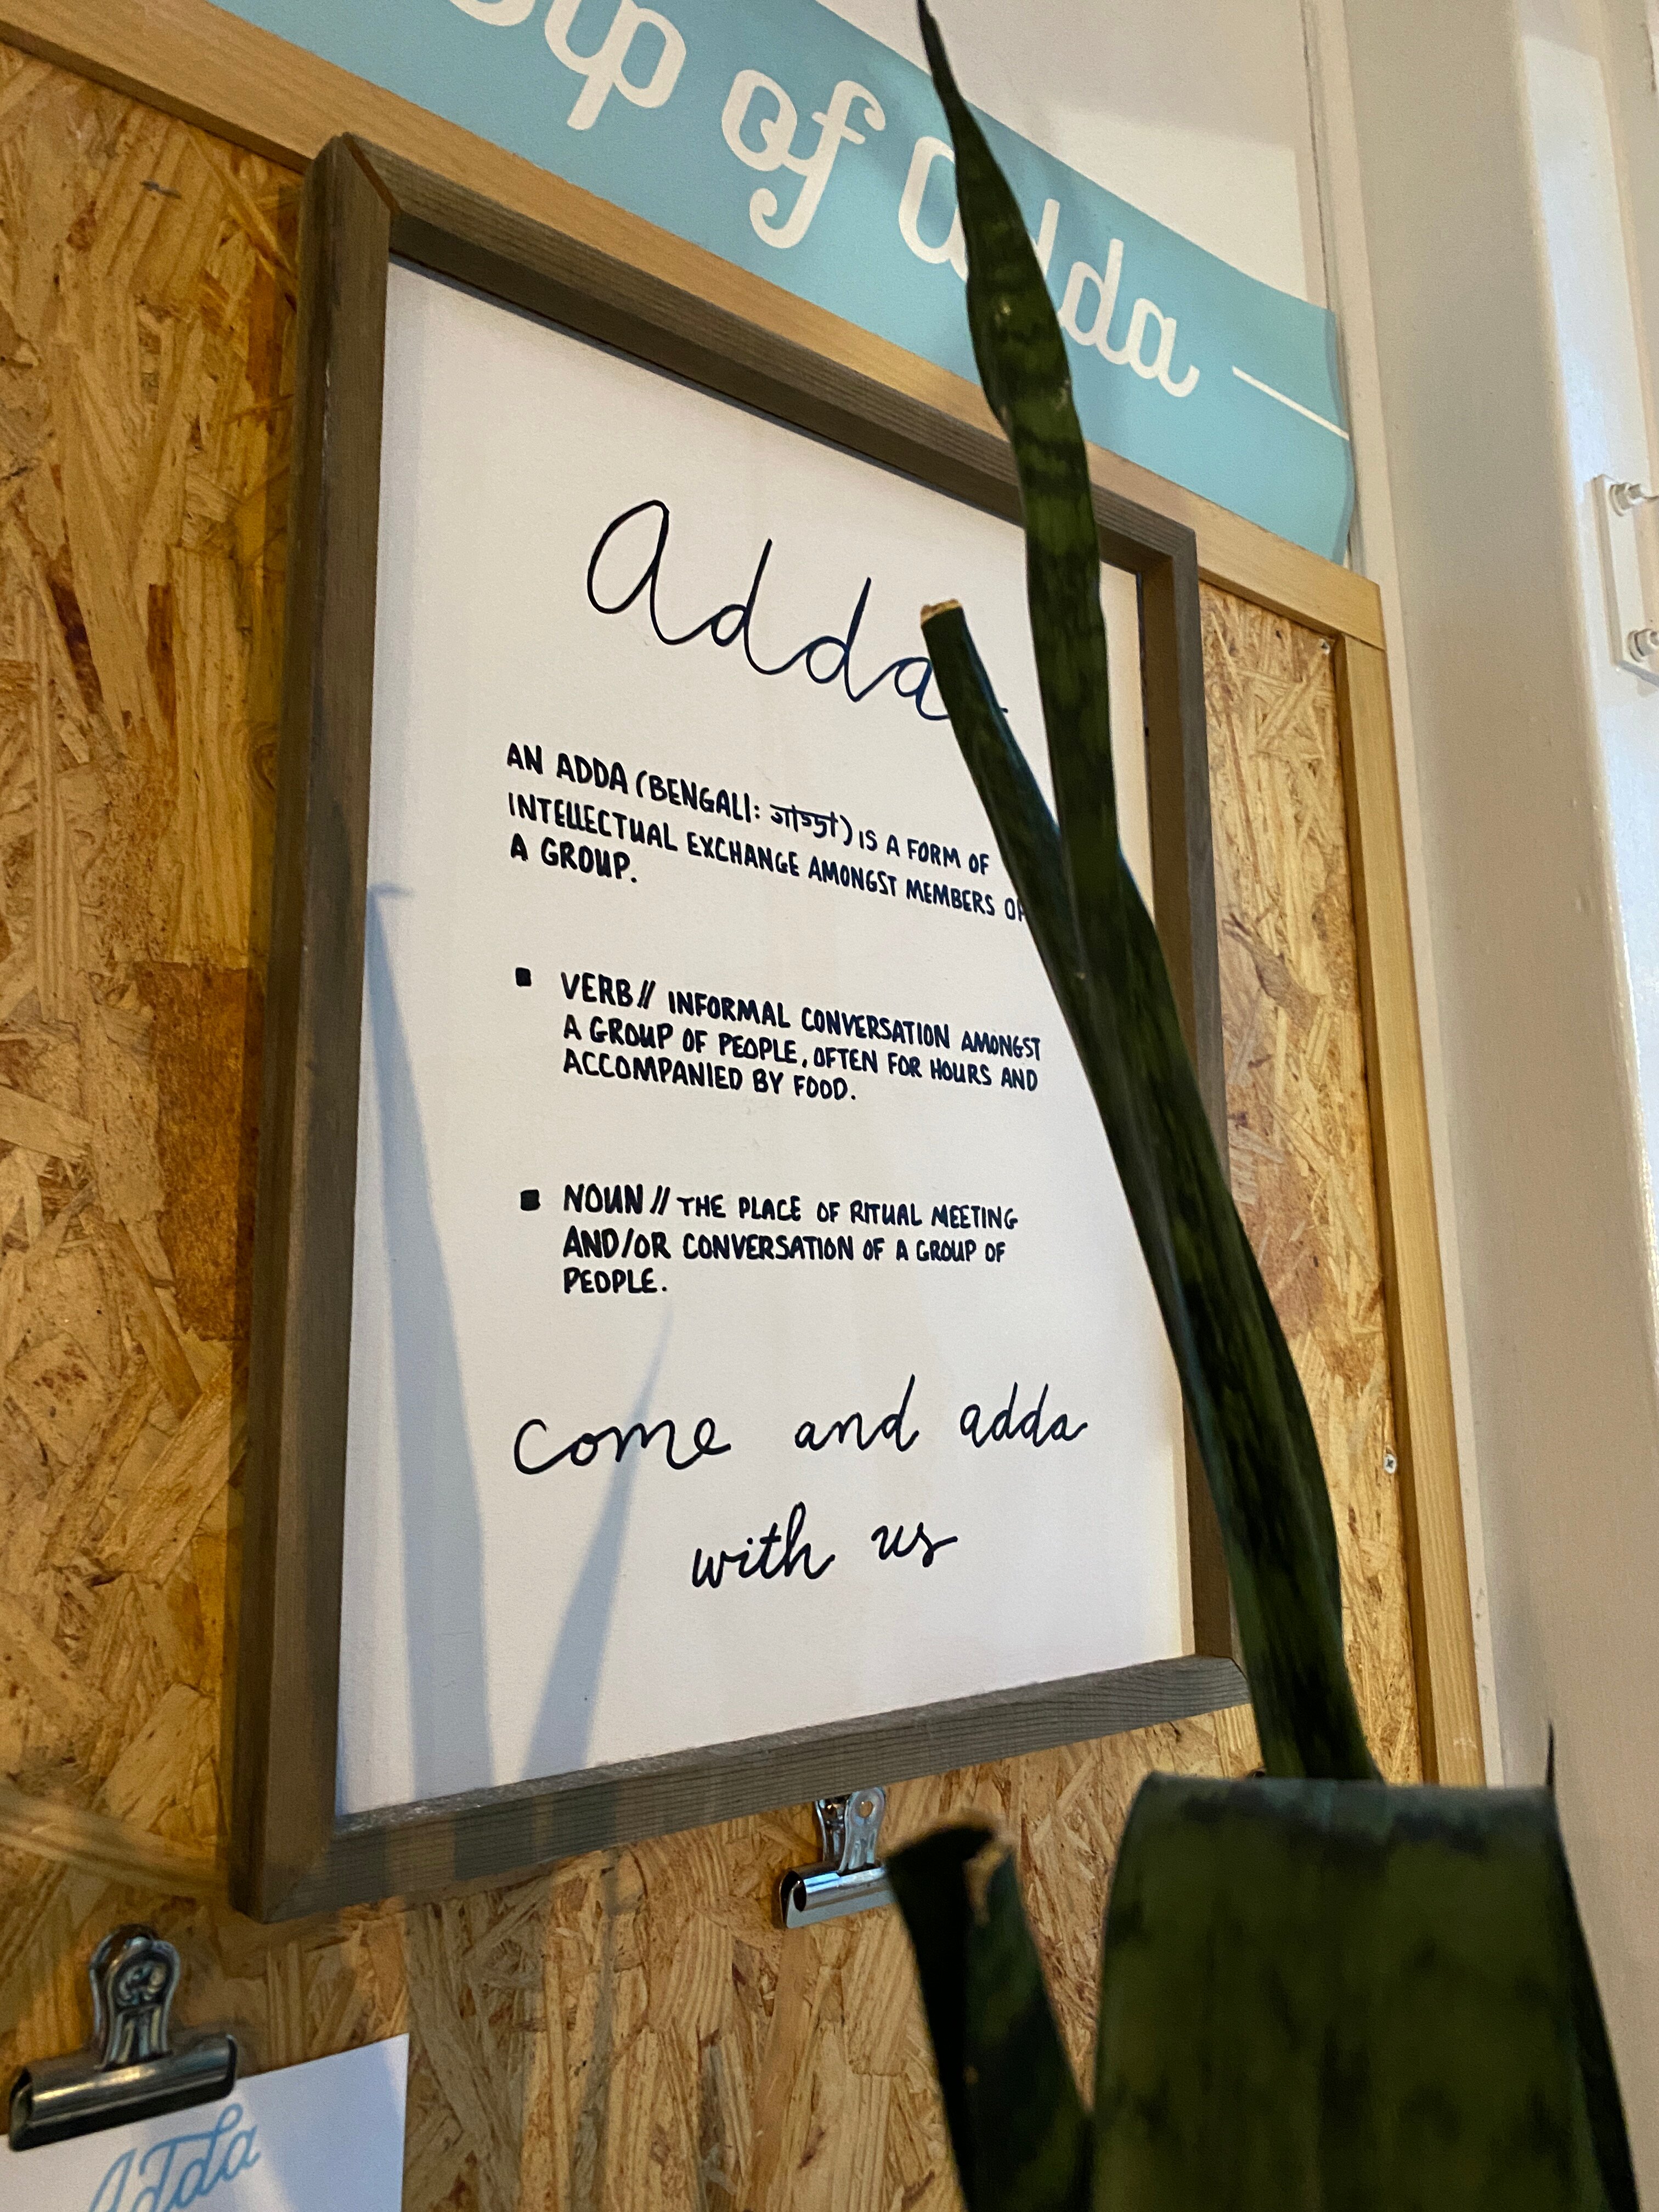 of adda
Adda
AN ADDA (BENGALI: আড্ডা) IS A FORM OF
INTELLECTUAL EXCHANGE AMONGST MEMBERS OF
A GROUP.
▪ VERB// INFORMAL CONVERSATION AMONGST
A GROUP OF PEOPLE, OFTEN FOR HOURS AND
ACCOMPANIED BY FOOD.
▪ NOUN// THE PLACE OF RITUAL MEETING
AND/OR CONVERSATION OF A GROUP OF
PEOPLE.
come and adda
with us
Adda